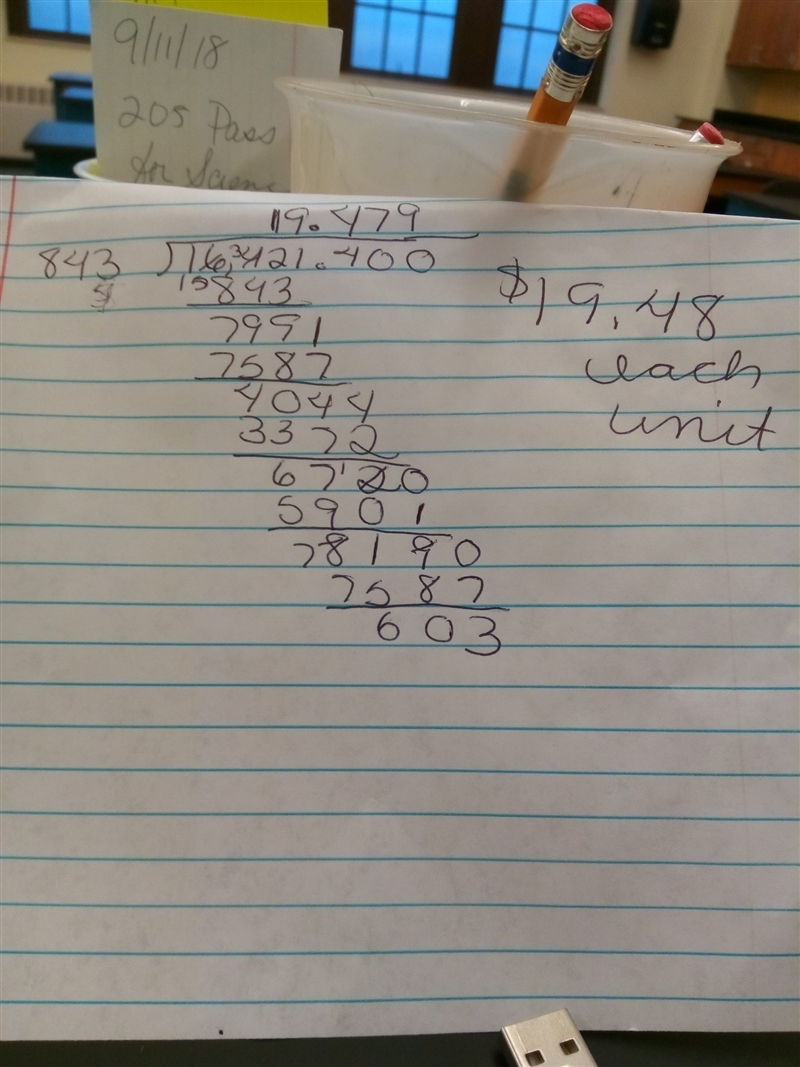 9/11/18
205 Pass
for
19.479
843 )16,421.400
843
7991
7587
4044
3372
6720
5901
78190
7587
603
$19.48
each
unit